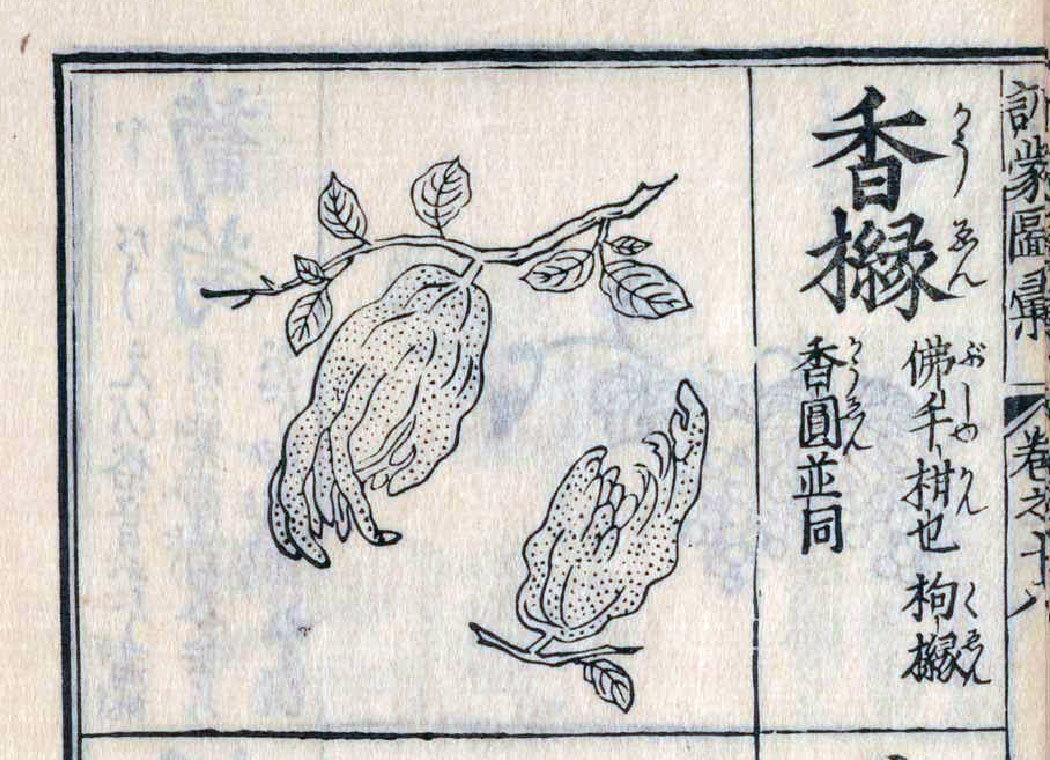 訓蒙圖彙 卷之十八
かうゑん
香櫞
ぶしゆかん くゑん
佛手柑也 枸櫞
かうゑん
香圓並同